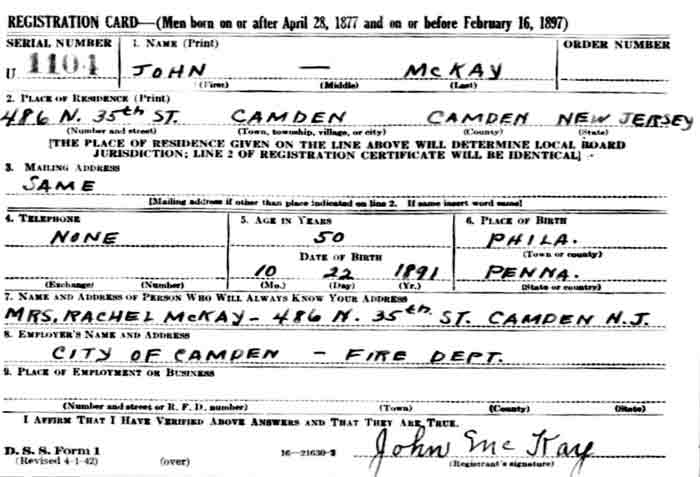 REGISTRATION CARD—(Men born on or after April 28, 1877 and on or before February 16, 1897)
SERIAL NUMBER 1. NAME (Print) ORDER NUMBER
U 1104 JOHN — MCKAY
(First) (Middle) (Last)
2. PLACE OF RESIDENCE (Print)
486 N. 35th ST. CAMDEN CAMDEN NEW JERSEY
(Number and street) (Town, township, village, or city) (County) (State)
[THE PLACE OF RESIDENCE GIVEN ON THE LINE ABOVE WILL DETERMINE LOCAL BOARD
JURISDICTION; LINE 2 OF REGISTRATION CERTIFICATE WILL BE IDENTICAL]
3. MAILING ADDRESS
SAME
[Mailing address if other than place indicated on line 2. If same insert word same]
4. TELEPHONE 5. AGE IN YEARS 6. PLACE OF BIRTH
NONE 50 PHILA.
DATE OF BIRTH (Town or county)
10 22 1891 PENNA.
(Exchange) (Number) (Mo.) (Day) (Yr.) (State or country)
7. NAME AND ADDRESS OF PERSON WHO WILL ALWAYS KNOW YOUR ADDRESS
MRS. RACHEL MCKAY - 486 N. 35th ST. CAMDEN N.J.
8. EMPLOYER'S NAME AND ADDRESS
CITY OF CAMDEN - FIRE DEPT.
9. PLACE OF EMPLOYMENT OR BUSINESS
(Number and street or R. F. D. number) (Town) (County) (State)
I AFFIRM THAT I HAVE VERIFIED ABOVE ANSWERS AND THAT THEY ARE TRUE.
D. S. S. Form 1 John McKay
(Revised 4-1-42) (over) 16—21630-2 (Registrant's signature)